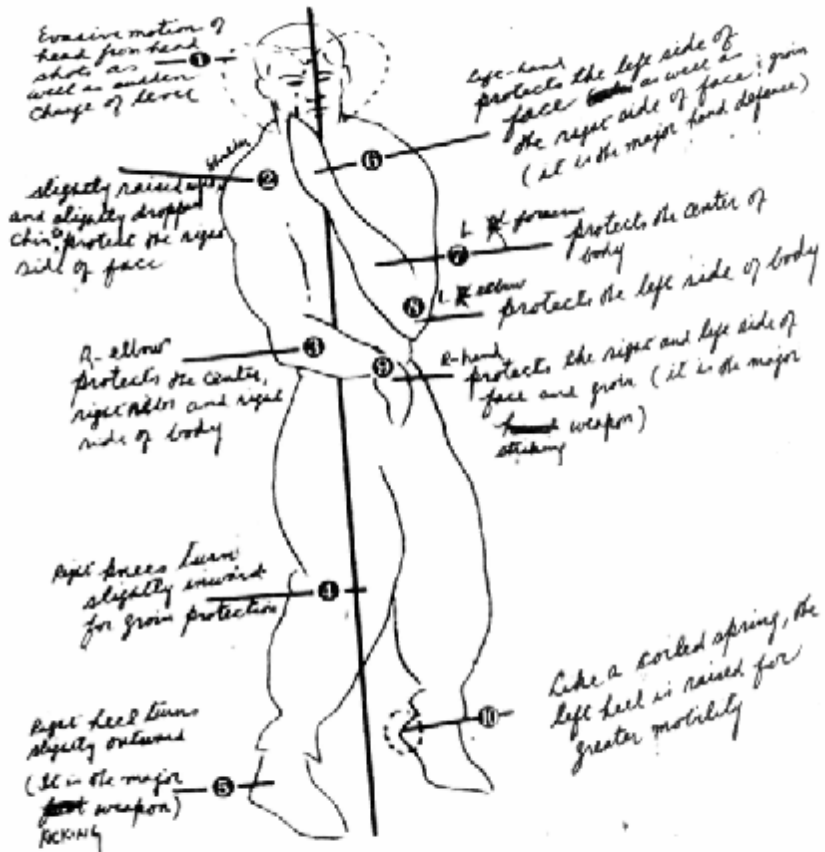 Evasive motion of
head from head
shots as
well as sudden
change of level
1
shoulder
slightly raised
and slightly dropped
chin protect the right
side of face
2
R-elbow
protects the center,
right and right
side of body
3
Right knees turn
slightly inward
for groin protection
4
Right heel turns
slightly outward
(It is the major
weapon)
KICKING
5
Left-hand
protects the left side of
face as well as
the right side of face; groin
(it is the major hand defence)
6
L forearm
protects the center of
body
7
L elbow
protects the left side of body
8
R-hand
protects the right and left side of
face and groin (it is the major
hand weapon)
striking
9
Like a coiled spring, the
left heel is raised for
greater mobility
10